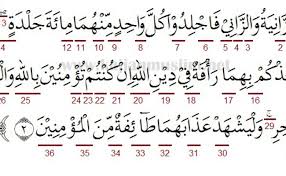 زَانِيَةُ وَالزَّانِي فَاجْلِدُوا كُلَّ وَاحِدٍ مِّنْهُمَا مِائَةَ جَلْدَةٍ
3 4 5 6 7 8 9 10 11 12
ذْكُم بِهِمَا رَأْفَةٌ فِي دِينِ اللَّهِ إِن كُنتُمْ تُؤْمِنُونَ بِاللَّهِ وَالْ
16 17 18 19 20 21 22 23 24 25 26
خِرِ ۖ وَلْيَشْهَدْ عَذَابَهُمَا طَائِفَةٌ مِّنَ الْمُؤْمِنِينَ ٢
29 30 31 33 34 35 36